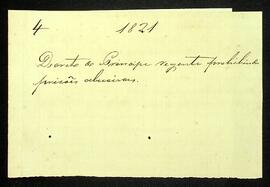 4 1821
Decreto do Principe regente prohibindo
prisões abusivas.